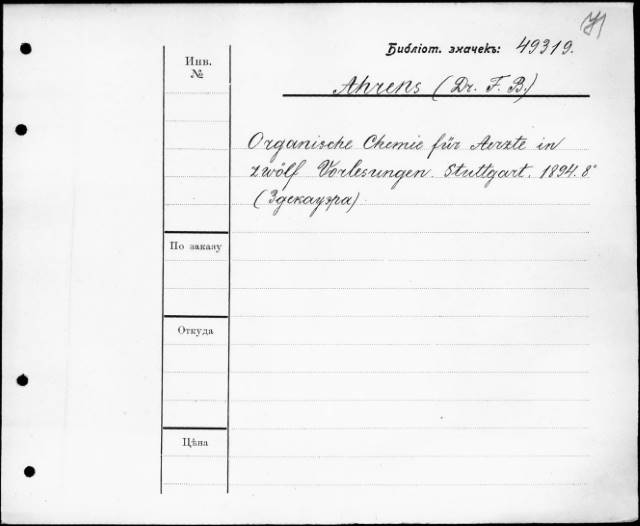 Библіот. значекъ: 49319.
Инв.
№
Ahrens (Dr. F. B.)
Organische Chemie für Aerzte in
zwölf Vorlesungen. Stuttgart. 1894. 8°
(Здекауэра)
По заказу
Откуда
Цѣна